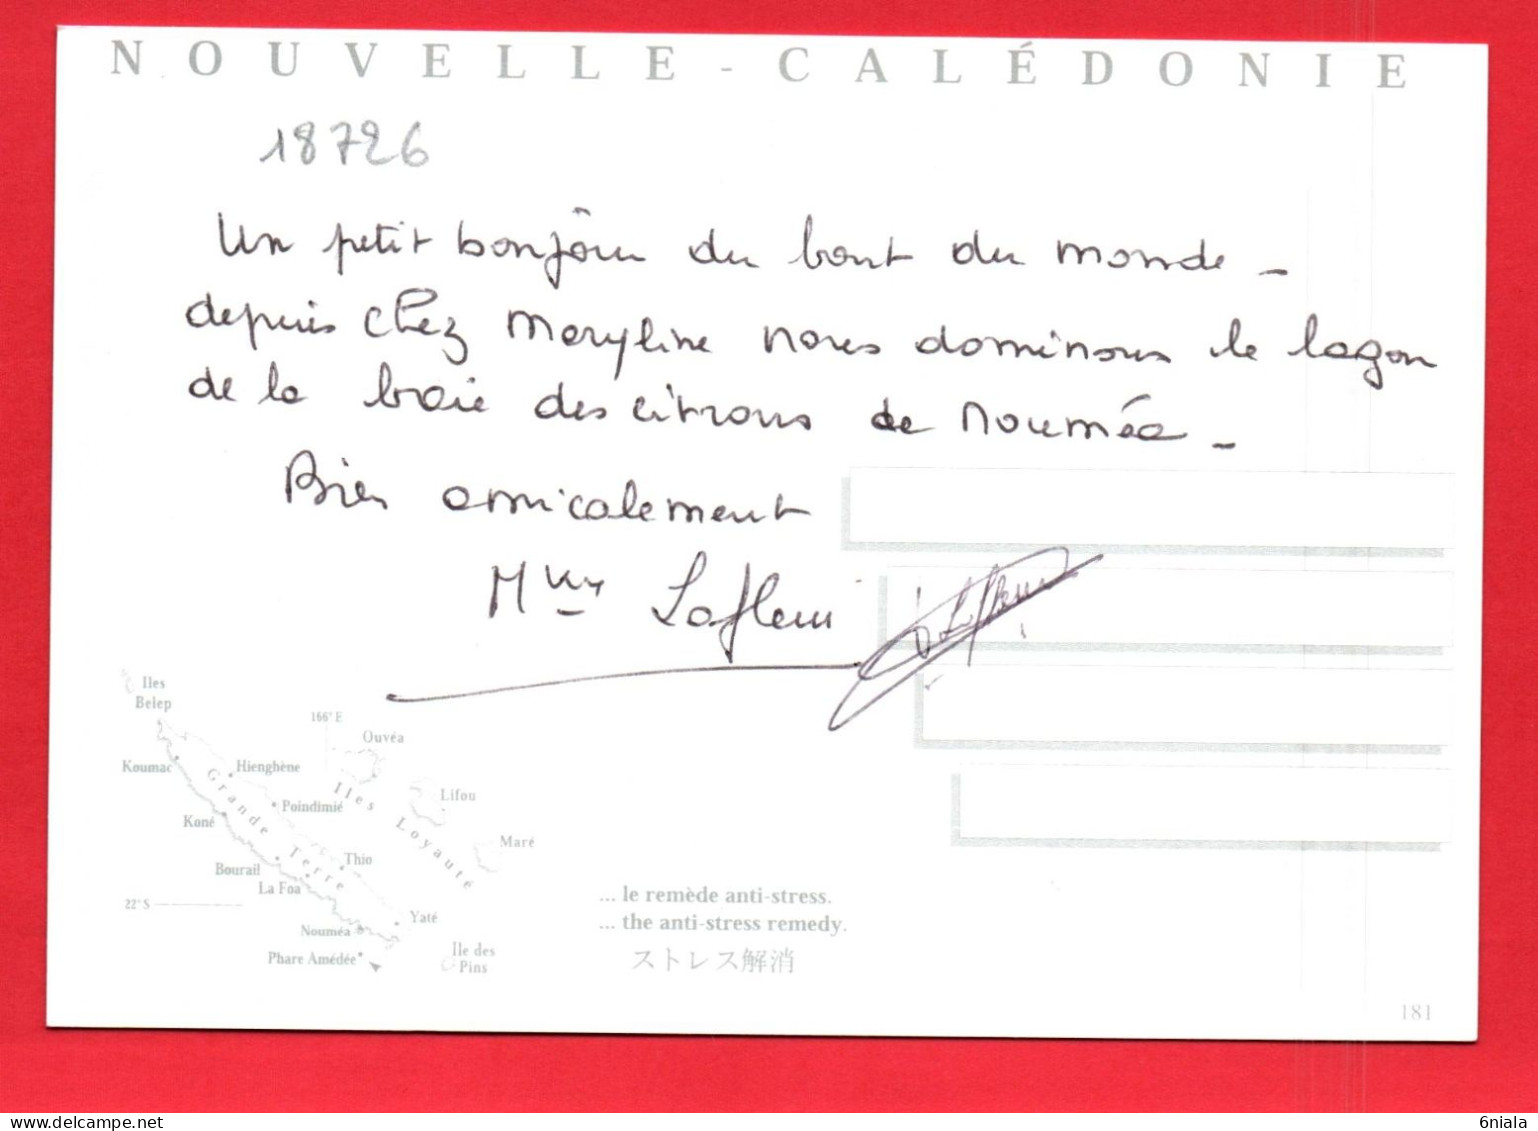 NOUVELLE-CALÉDONIE
18726
Un petit bonjour du bout du monde -
depuis chez Maryline nous dominons le lagon
de la baie des citrons de Nouméa -
Bien amicalement
Lafleur
Iles
Belep
166° E
Ouvéa
Koumac
Hienghène
Iles Loyauté
Lifou
Grande Terre
Poindimié
Koné
Maré
Thio
Bourail
La Foa
22° S
Yaté
Nouméa
Ile des
Pins
Phare Amédée
... le remède anti-stress.
... the anti-stress remedy.
ストレス解消
181
6niala